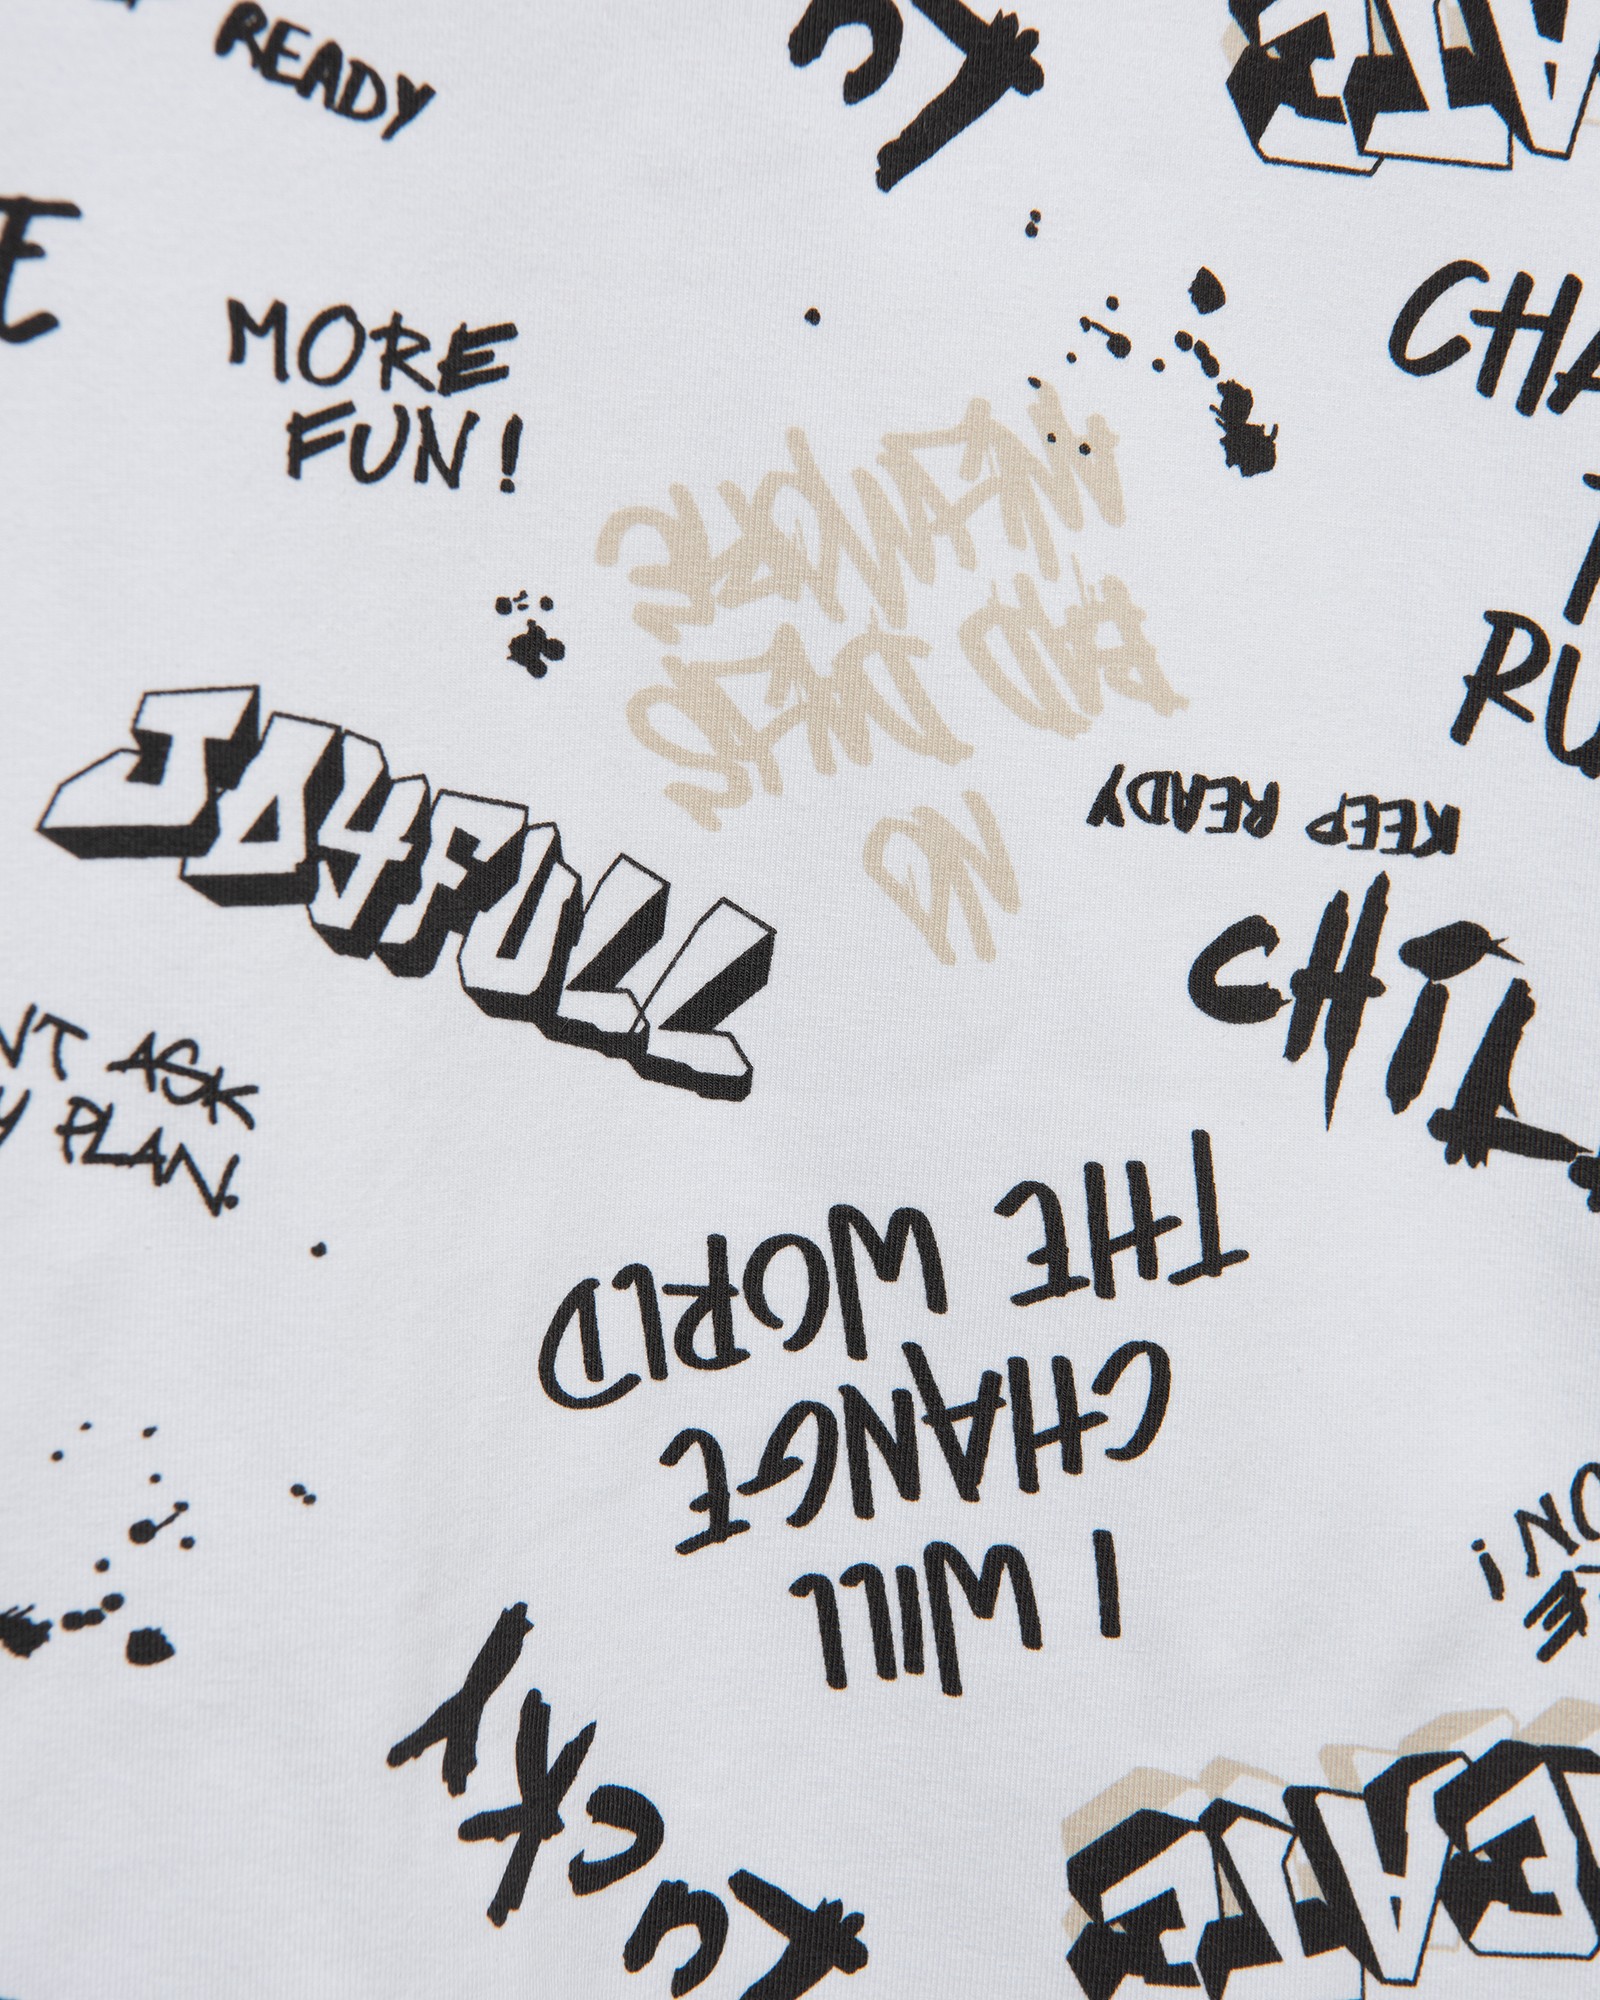 READY
MORE
FUN!
NO
BAD DAYS
MEMORIES
KEEP READY
JOYFULL
CHILL
N'T ASK
Y PLAN.
I WILL
CHANGE
THE WORLD
LUCKY
CHA
RU